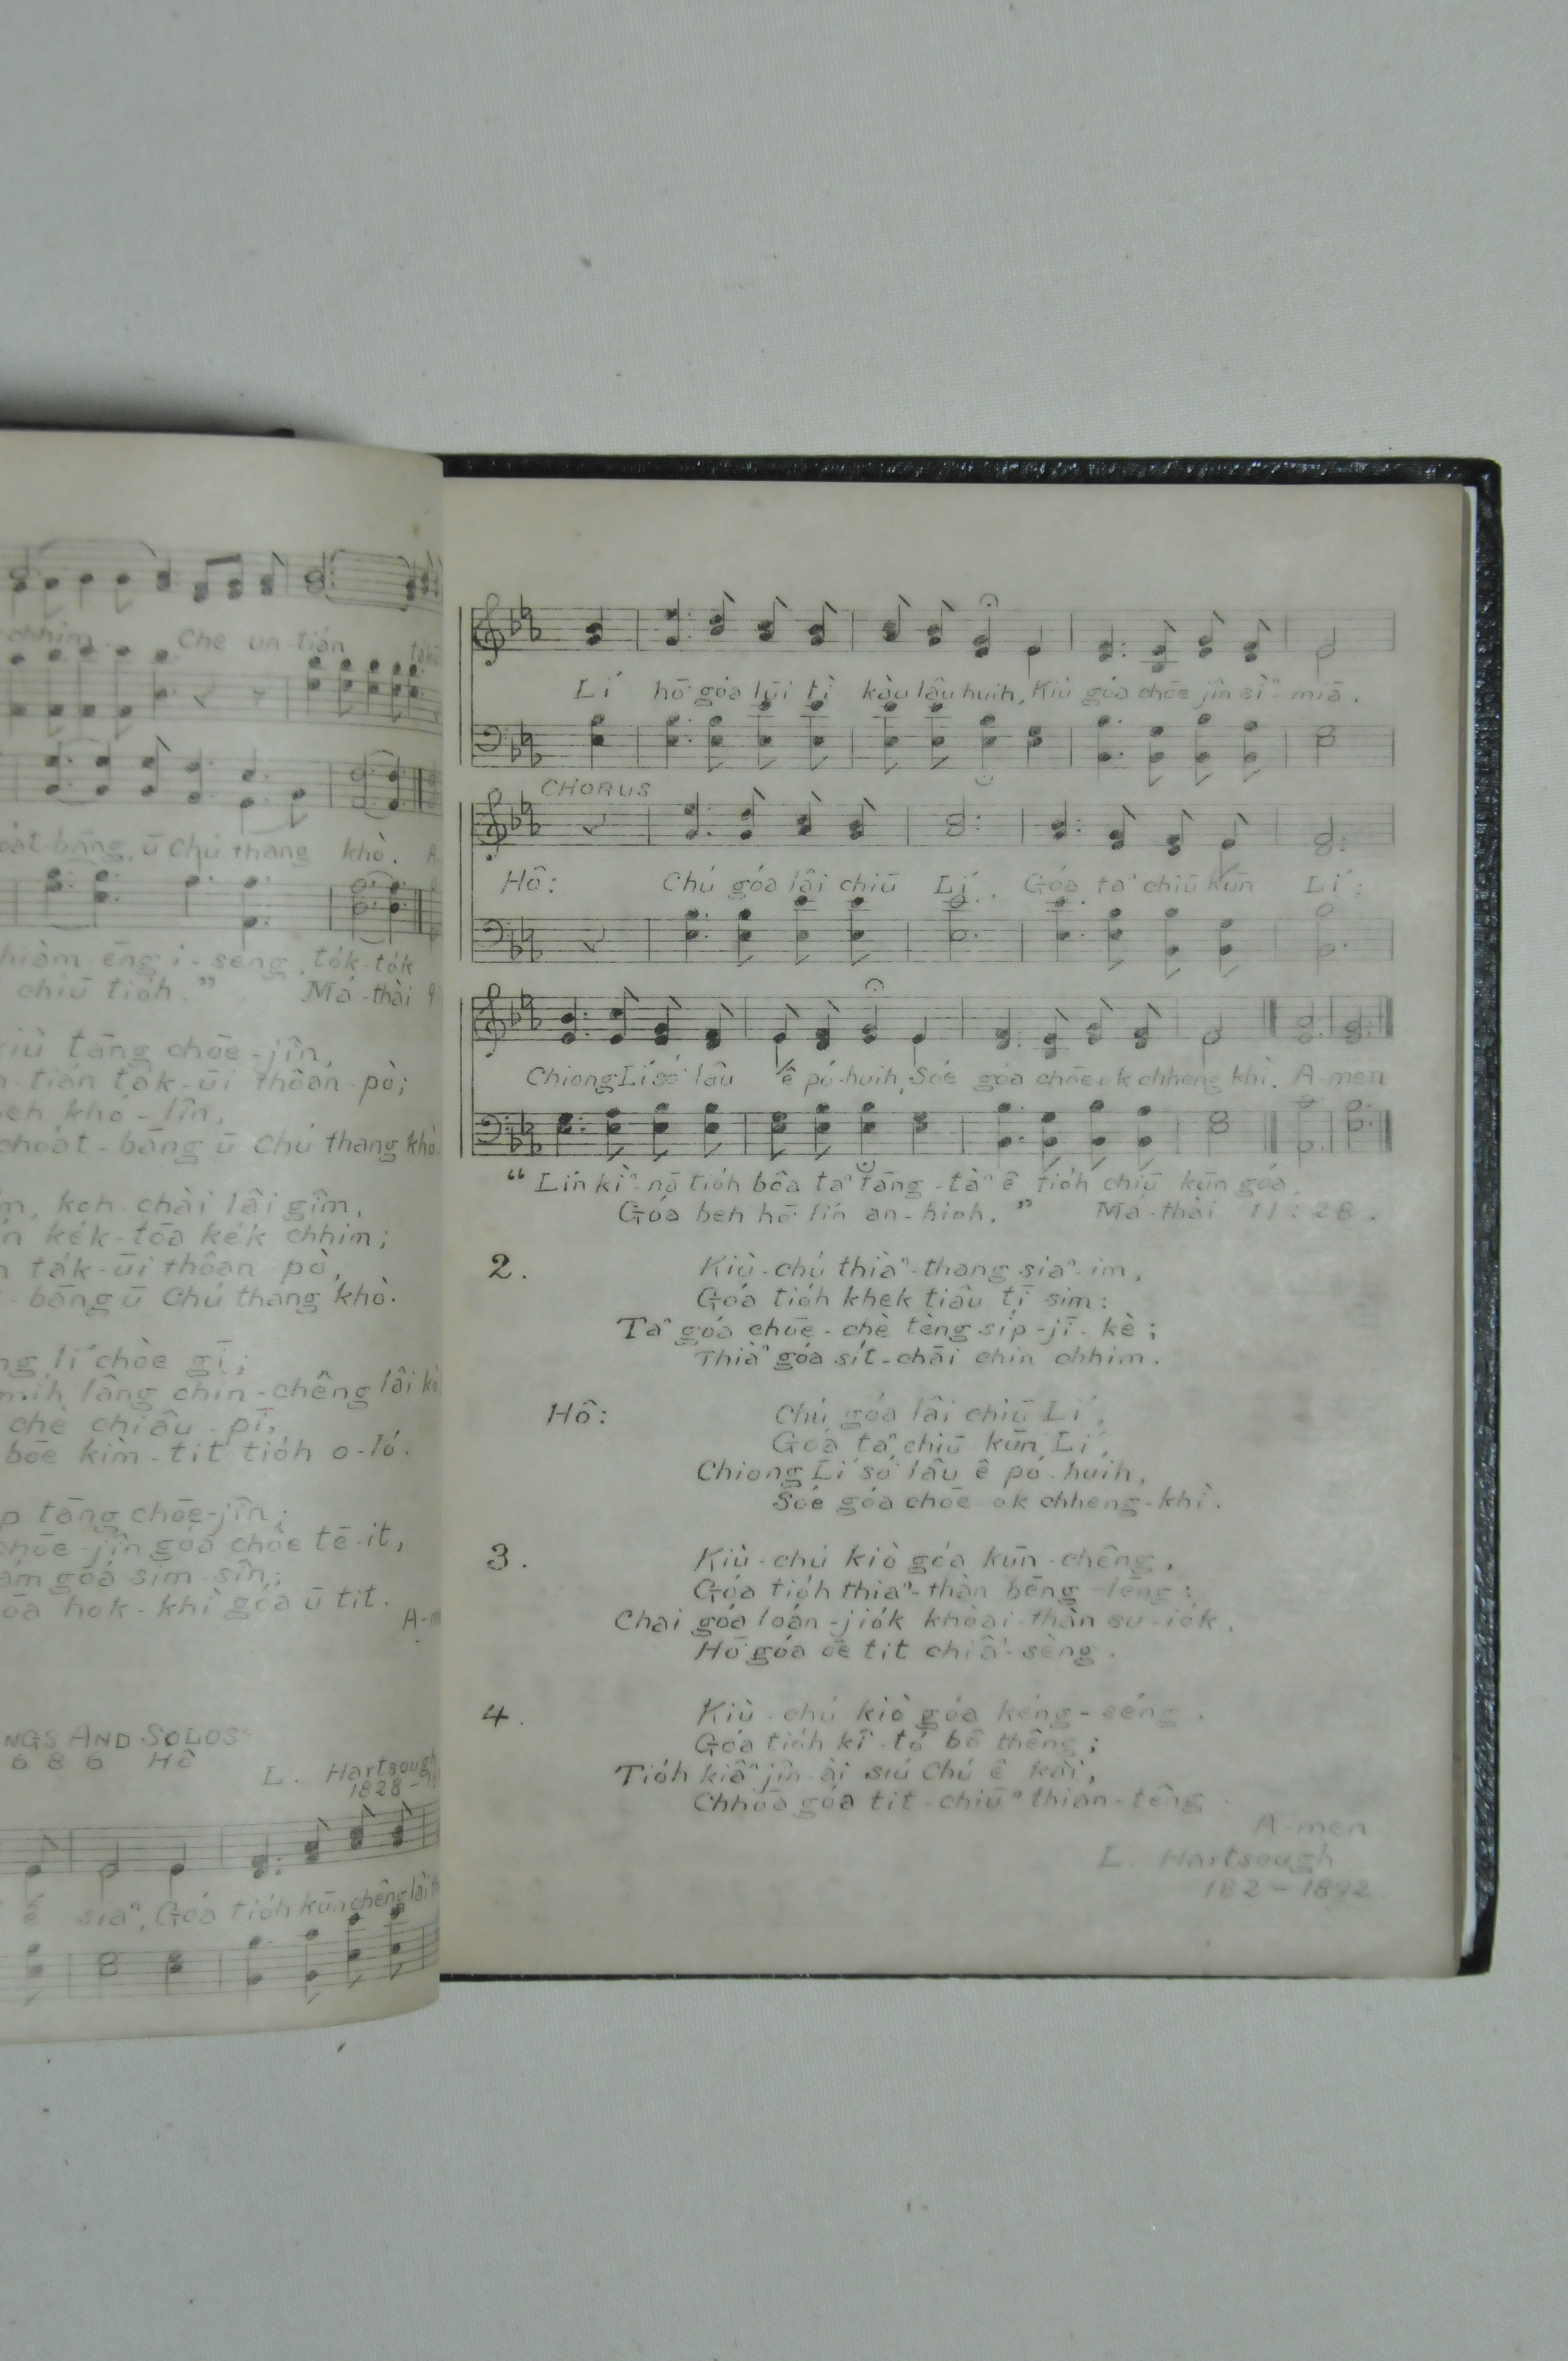 chhim. Che un-tián
choat-bāng, ū Chú thang khò. A-
hiàm-ēng i-seng, tók-tók
chiū tióh." Má-thài 9
kiù tāng chōe-jîn,
n-tián ták-ūi thôan-pò;
beh khó-lîn,
choát-bāng ū Chú thang khò.
koh-chài lâi gîm,
kék-tōa kék chhim;
ták-ūi thôan pò,
-bāng ū Chú thang khò.
ng li chòe gī;
mih lâng chin-chêng lâi kò
chè chiâu-pī,
bōe kìm-tit tióh o-ló.
p tāng chōe-jîn;
chōe-jîn góa chòe tē-it,
ám góa sim-sîn;
ōa hok-khì góa ū tit.
A-m
NGS AND SOLOS
686 HÔ
L. Hartsough
1828-
ê siaⁿ, Góa tióh kūn chêng lâi
Lí hō͘ góa lūi tì kàu lâu huih, Kiù góa chōe jîn sìⁿ-miā.
CHORUS
Hô: Chú góa lâi chiū Lí. Góa taⁿ chiū kūn Lí:
Chiong Lí só͘ lâu ê pó-huih, Sóe góa chōe ok chheng-khì. A-men
"Lín kìⁿ-nā tióh bôa taⁿ tāng-tàⁿ ê tióh chiū-kūn góa,
Góa beh hō͘ lín an-hioh." Má-thài 11:28.
2. Kiù-chú thiàⁿ-thang siaⁿ-im,
Góa tióh khek tiâu tī sim:
Taⁿ góa chōe-chè tèng síp-jī-kè;
Thiàⁿ góa sít-chāi chin chhim.
Hô: Chú góa lâi chiū Lí,
Góa taⁿ chiū kūn Lí,
Chiong Lí só͘ lâu ê pó-huih,
Sóe góa chōe ok chheng-khì.
3. Kiù-chú kiò góa kūn-chêng,
Góa tióh thiaⁿ-thàn bēng-lēng:
Chai góa loán-jiók khòai-thàn su-iók,
Hō͘ góa ōe tit chiâⁿ-sèng.
4. Kiù-chú kiò góa kéng-séng,
Góa tióh kî-tó bô thêng;
Tióh kiâⁿ jîn-ài siú Chú ê kài,
Chhōa góa tit-chiūⁿ thian-têng.
A-men
L. Hartsough
182-1892